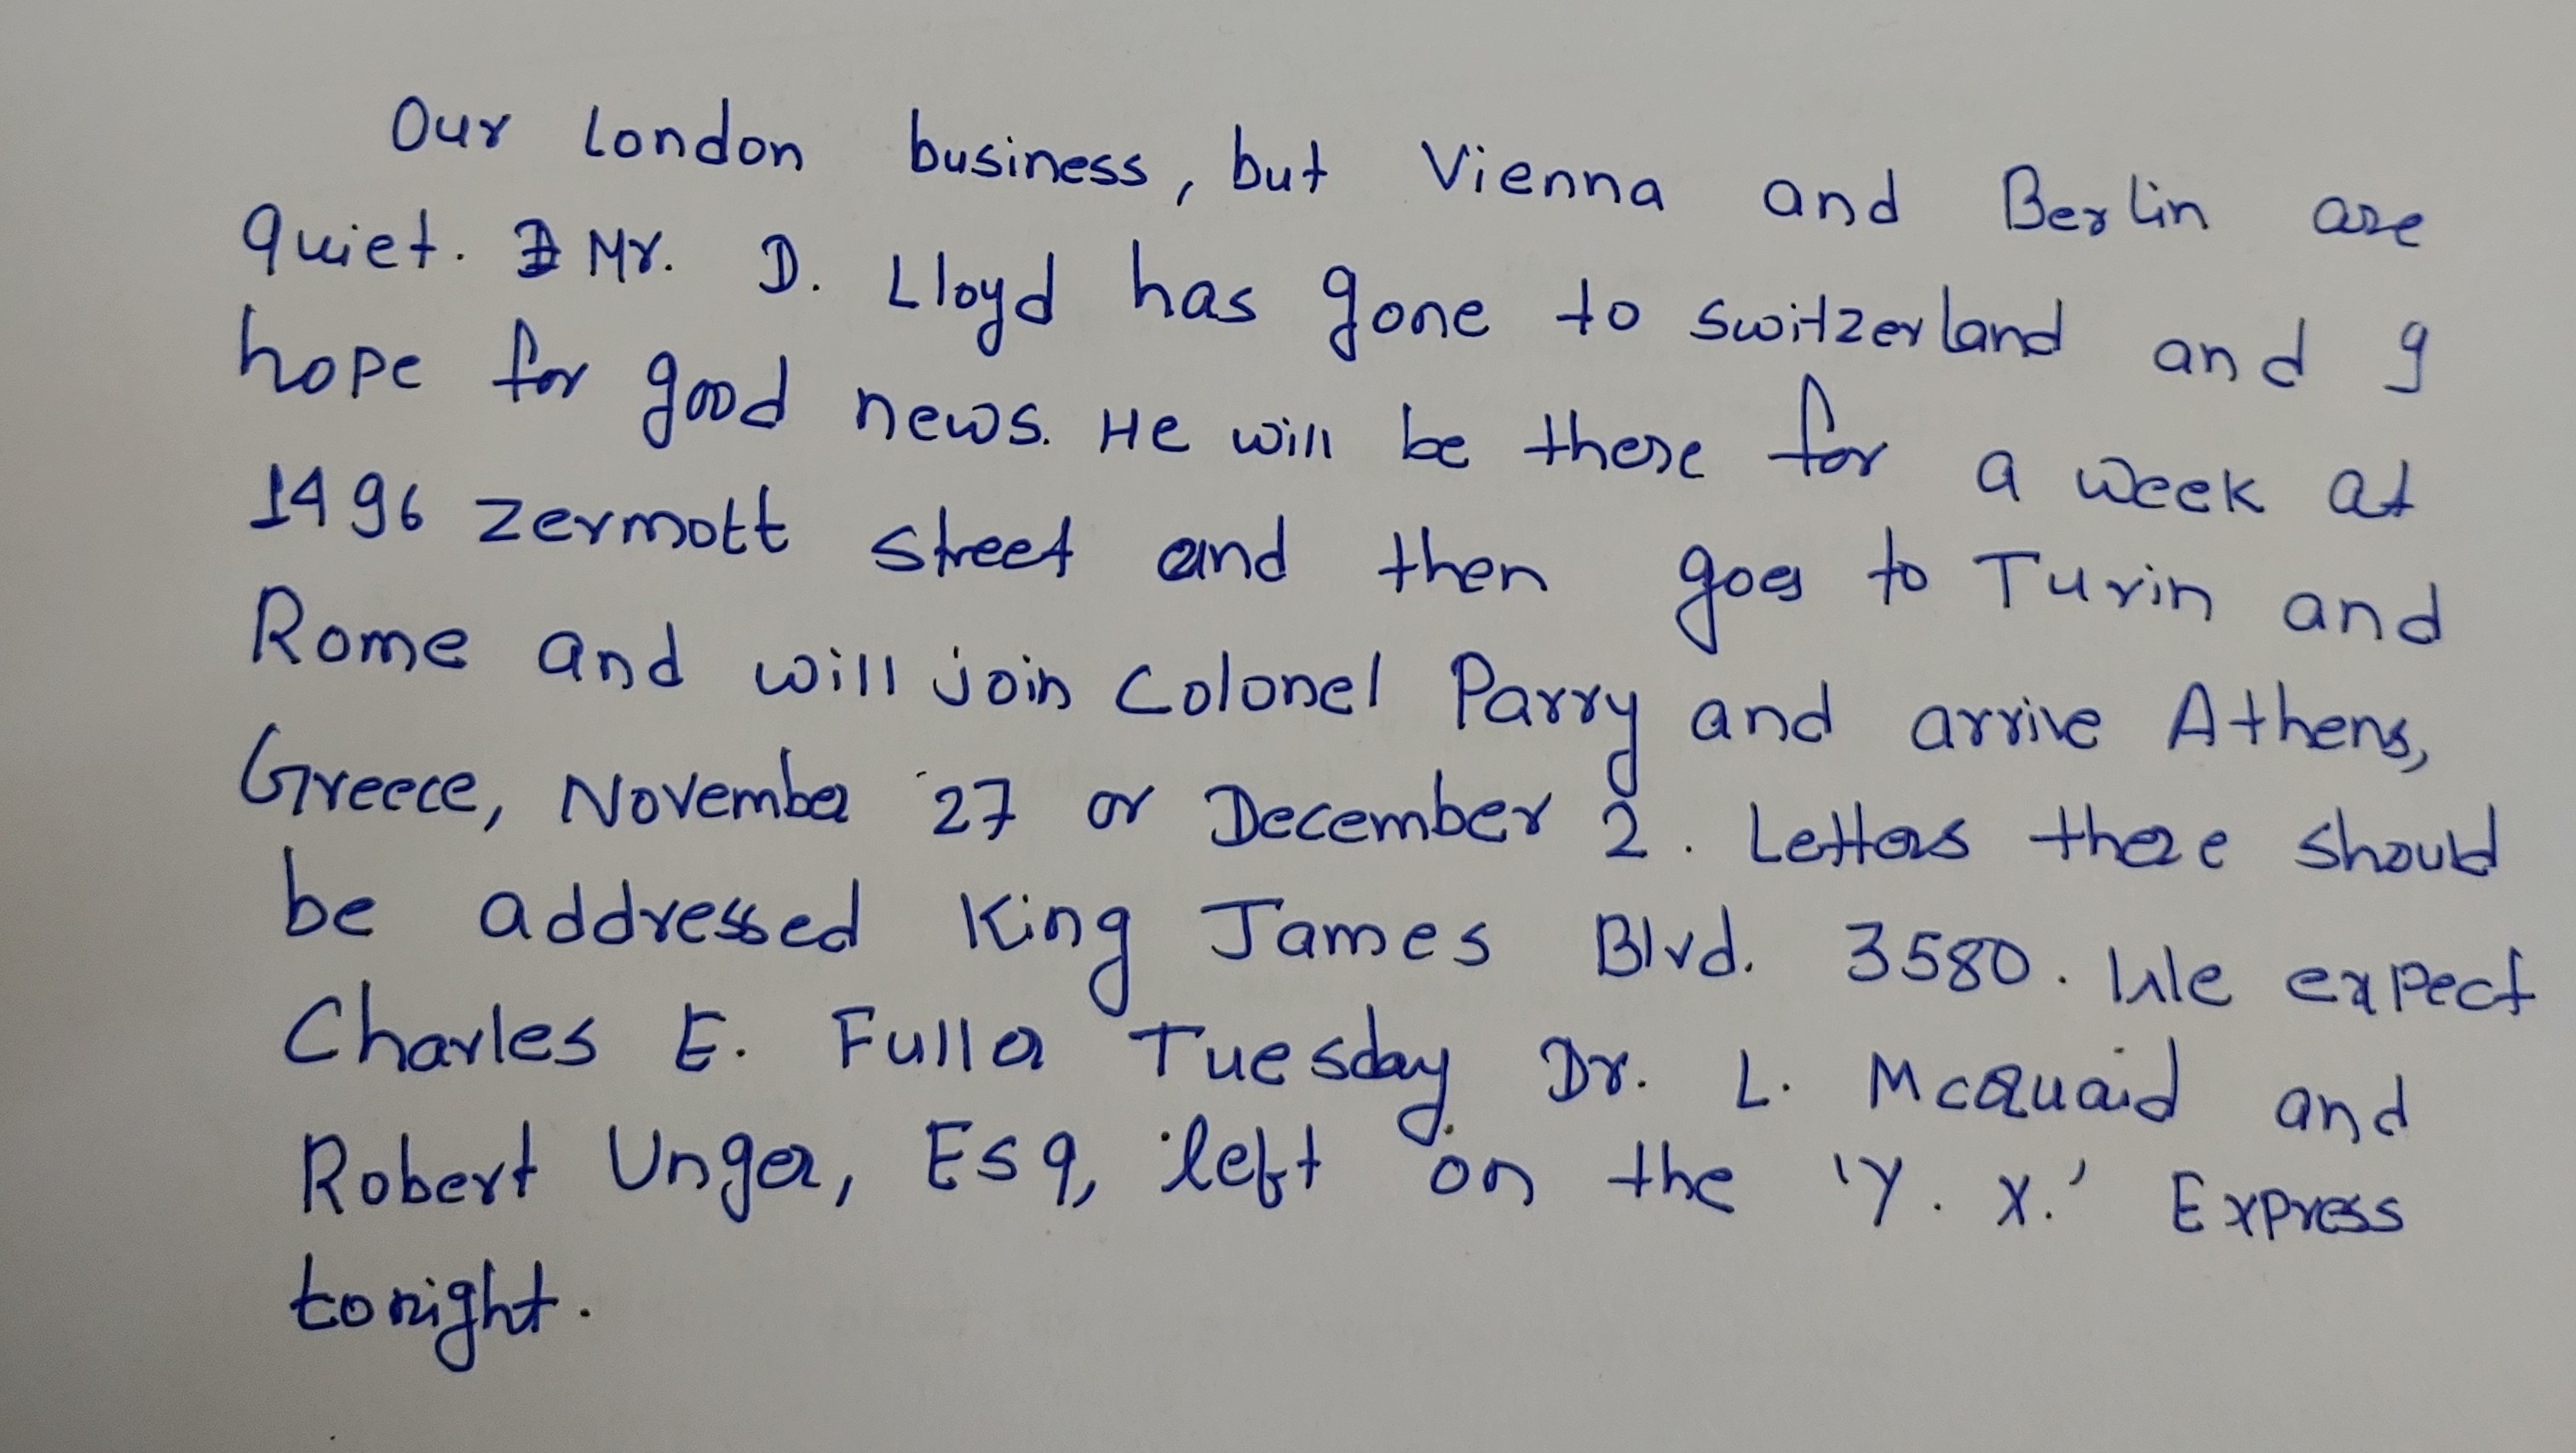 Our London business, but Vienna and Berlin are
quiet. Mr. D. Lloyd has gone to Switzerland and I
hope for good news. He will be there for a week at
1496 Zermott street and then goes to Turin and
Rome and will join Colonel Parry and arrive Athens,
Greece, November 27 or December 2. Letters there should
be addressed King James Blvd. 3580. We expect
Charles E. Fuller Tuesday. Dr. L. McQuaid and
Robert Unger, Esq, left on the 'Y. X.' Express
tonight.